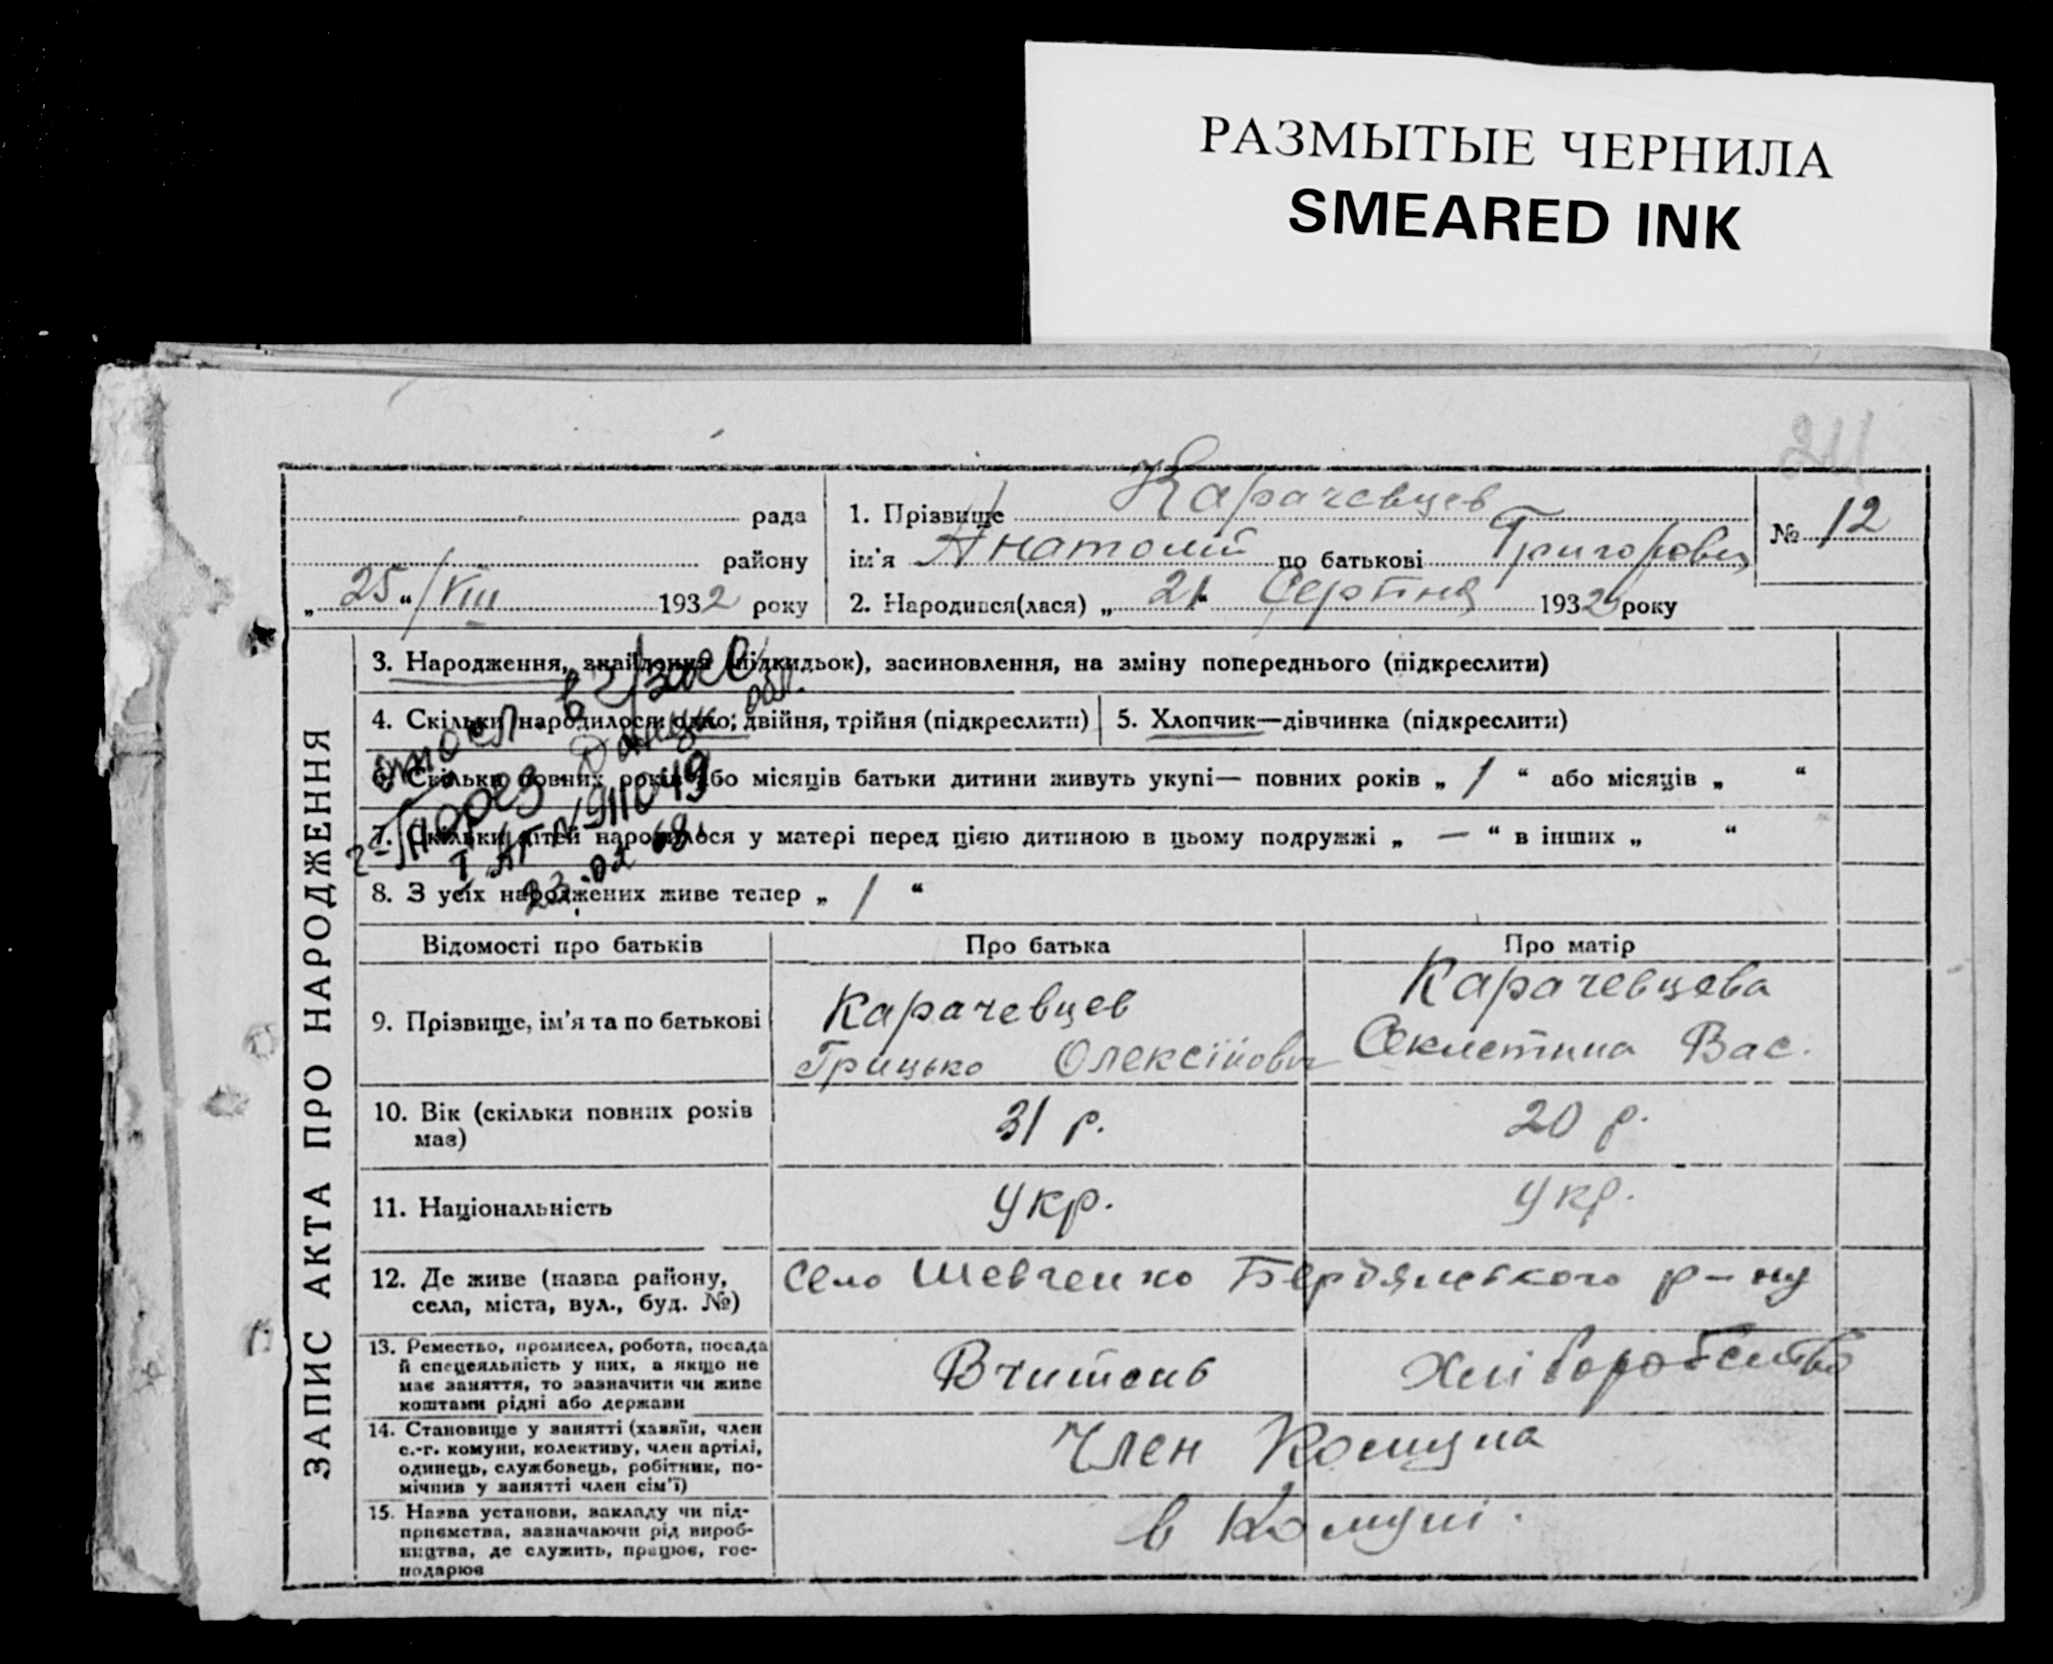 РАЗМЫТЫЕ ЧЕРНИЛА
SMEARED INK
211
рада
району
„ 25 “ / VIII 1932 року
1. Прізвище Карачевцев
ім'я Анатолій по батькові Григорович
2. Народився(лася) „ 21 “ Серпня 1932 року
№ 12
ЗАПИС АКТА ПРО НАРОДЖЕННЯ
3. Народження, знайдення (підкидьок), засиновлення, на зміну попереднього (підкреслити)
4. Скільки народилося: одно; двійня, трійня (підкреслити)
5. Хлопчик—дівчинка (підкреслити)
6. Скільки повних років або місяців батьки дитини живуть укупі— повних років „ 1 “ або місяців „ “
7. Скільки дітей народилося у матері перед цією дитиною в цьому подружжі „ — “ в інших „ “
8. З усіх народжених живе тепер „ 1 “
в ЗАГС
Донецк. обл.
г-Торез
№ 911049
23.
68.
Відомості про батьків
Про батька
Про матір
9. Прізвище, ім'я та по батькові
Карачевцев
Грицько Олексійович
Карачевцева
Секлетина Вас.
10. Вік (скільки повних років
має)
31 р.
20 р.
11. Національність
Укр.
Укр.
12. Де живе (назва району,
села, міста, вул., буд. №)
село Шевченко Бердянського р-ну
13. Ремество, промисел, робота, посада
й спецеяльність у них, а якщо не
має заняття, то зазначити чи живе
коштами рідні або держави
Вчитель
Хліборобство
14. Становище у занятті (хазяїн, член
с.-г. комуни, колективу, член артілі,
одинець, службовець, робітник, по-
мічнив у занятті член сім'ї)
Член Комуна
15. Назва установи, закладу чи під-
приємства, зазначаючи рід вироб-
ництва, де служить, працює, гос-
подарює
в Комуні.